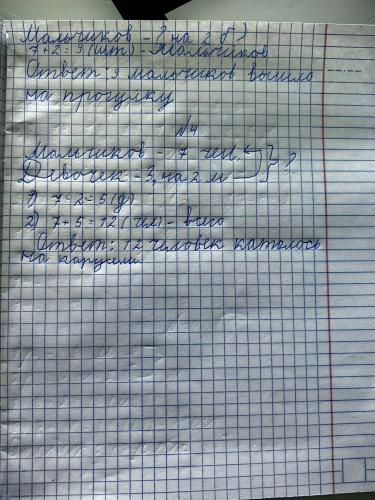 Мальчиков - ? на 2 б?
7+2=9(шт)-Мальчиков
Ответ: 9 мальчиков вышло
на прогулку
№4
Мальчиков - 7 чел. } ?
Девочек - ?, на 2 м
1) 7-2=5(д)
2) 7+5=12(чел)-всего
Ответ: 12 человек каталось
на карусели.